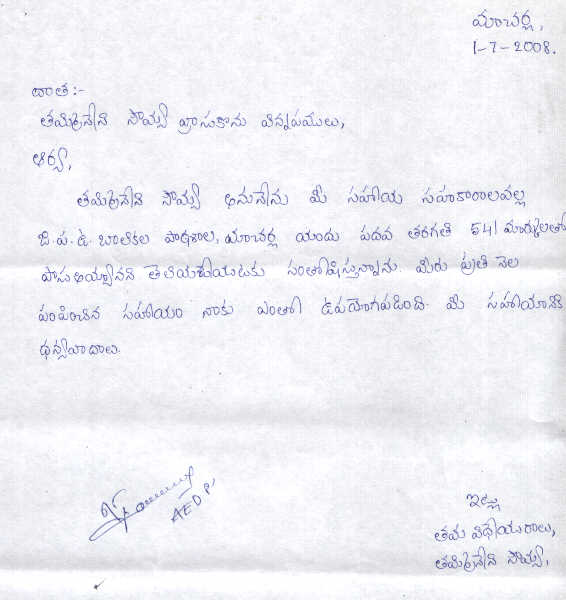 మాచర్ల,
1-7-2008.
దాత:-
తమ్మినేని సౌమ్య వ్రాసుకొను విన్నపములు,
ఆర్యా,
తమ్మినేని సౌమ్య అనునేను మీ సహాయ సహకారాలవల్ల
జి.ప.ఉ. బాలికల పాఠశాల, మాచర్ల యందు పదవ తరగతి 541 మార్కులతో
పాసు అయ్యానని తెలియజేయుటకు సంతోషిస్తున్నాను. మీరు ప్రతి నెల
పంపించిన సహాయం నాకు ఎంతో ఉపయోగపడింది. మీ సహాయానికి
ధన్యవాదాలు.
AEDP
ఇట్లు
తమ విధేయురాలు,
తమ్మినేని సౌమ్య.